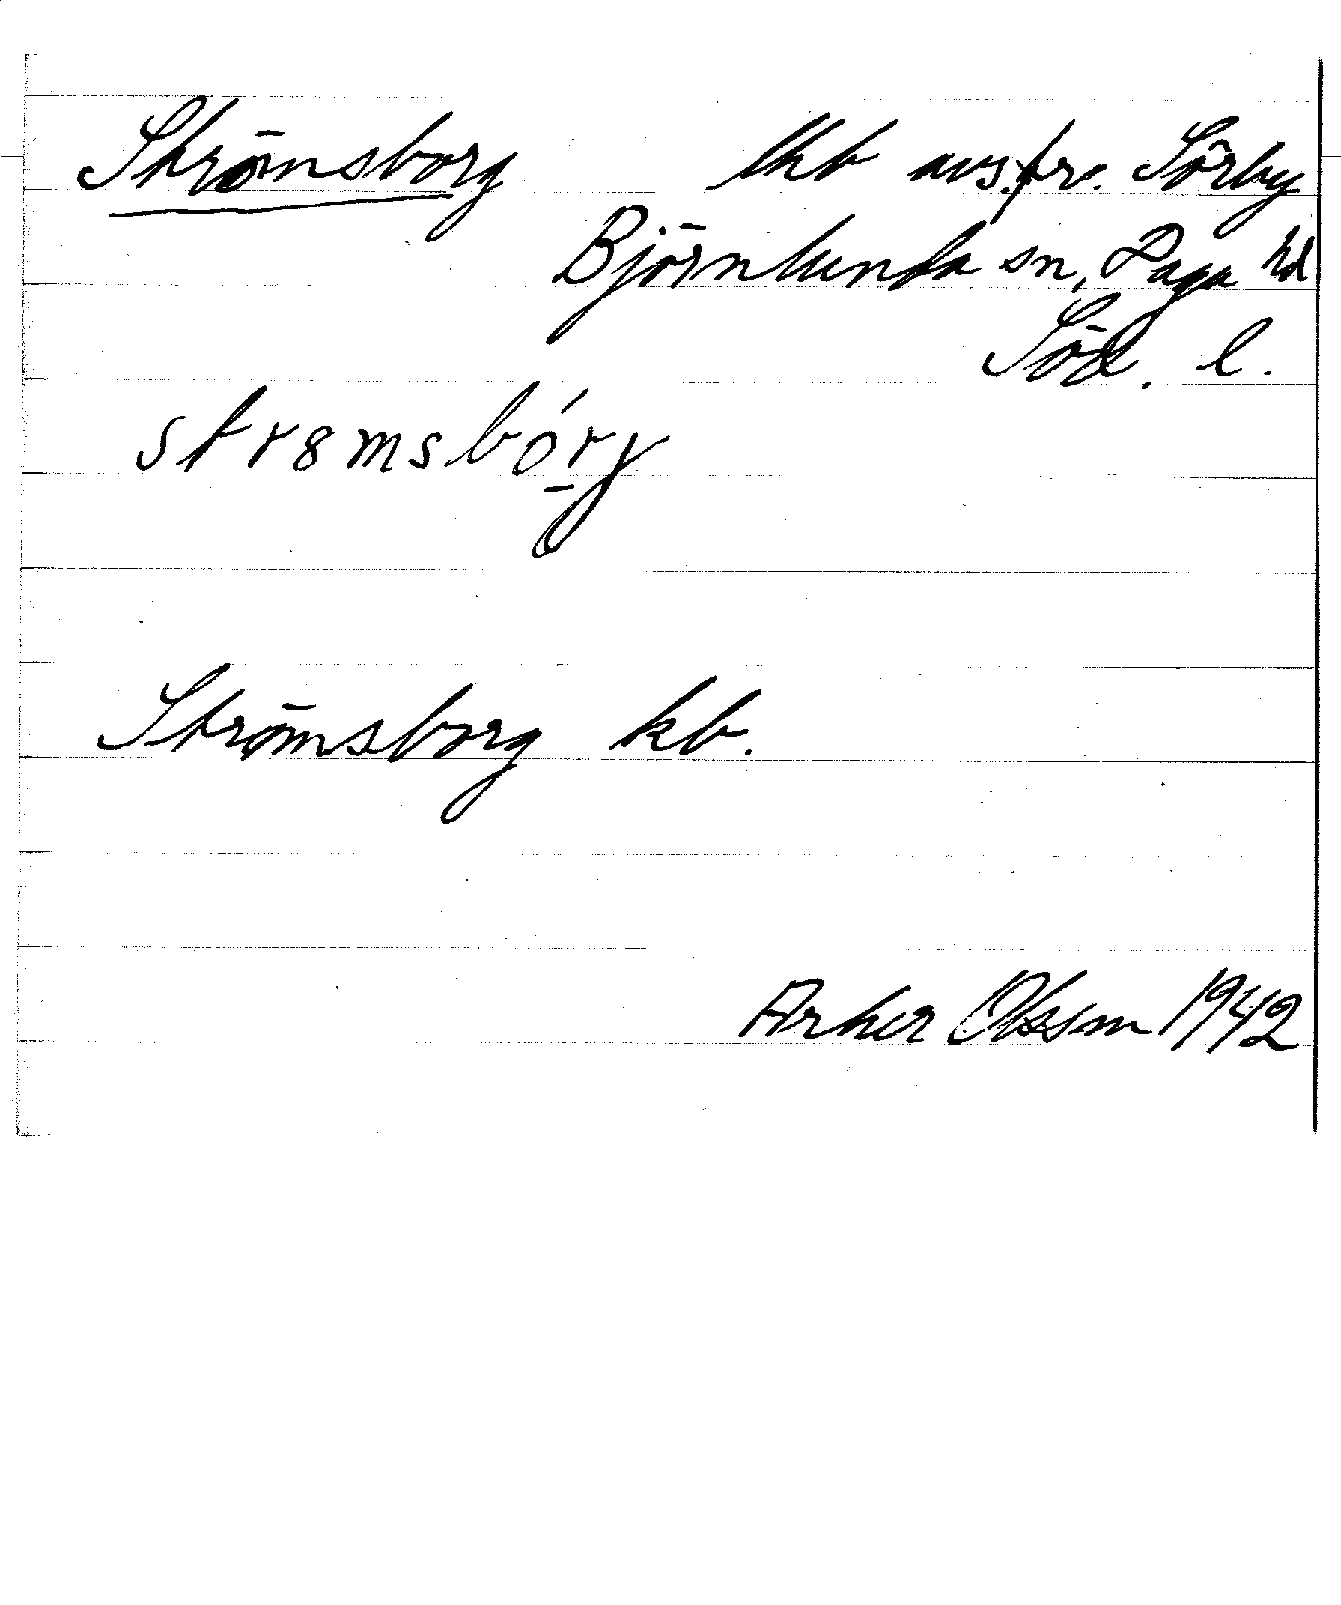 Strömsborg lhb avs. fr. Sörby
Björnlunda sn, Daga hd
Söd. l.
str8msbórg
Strömsborg kb.
Olsson 1942